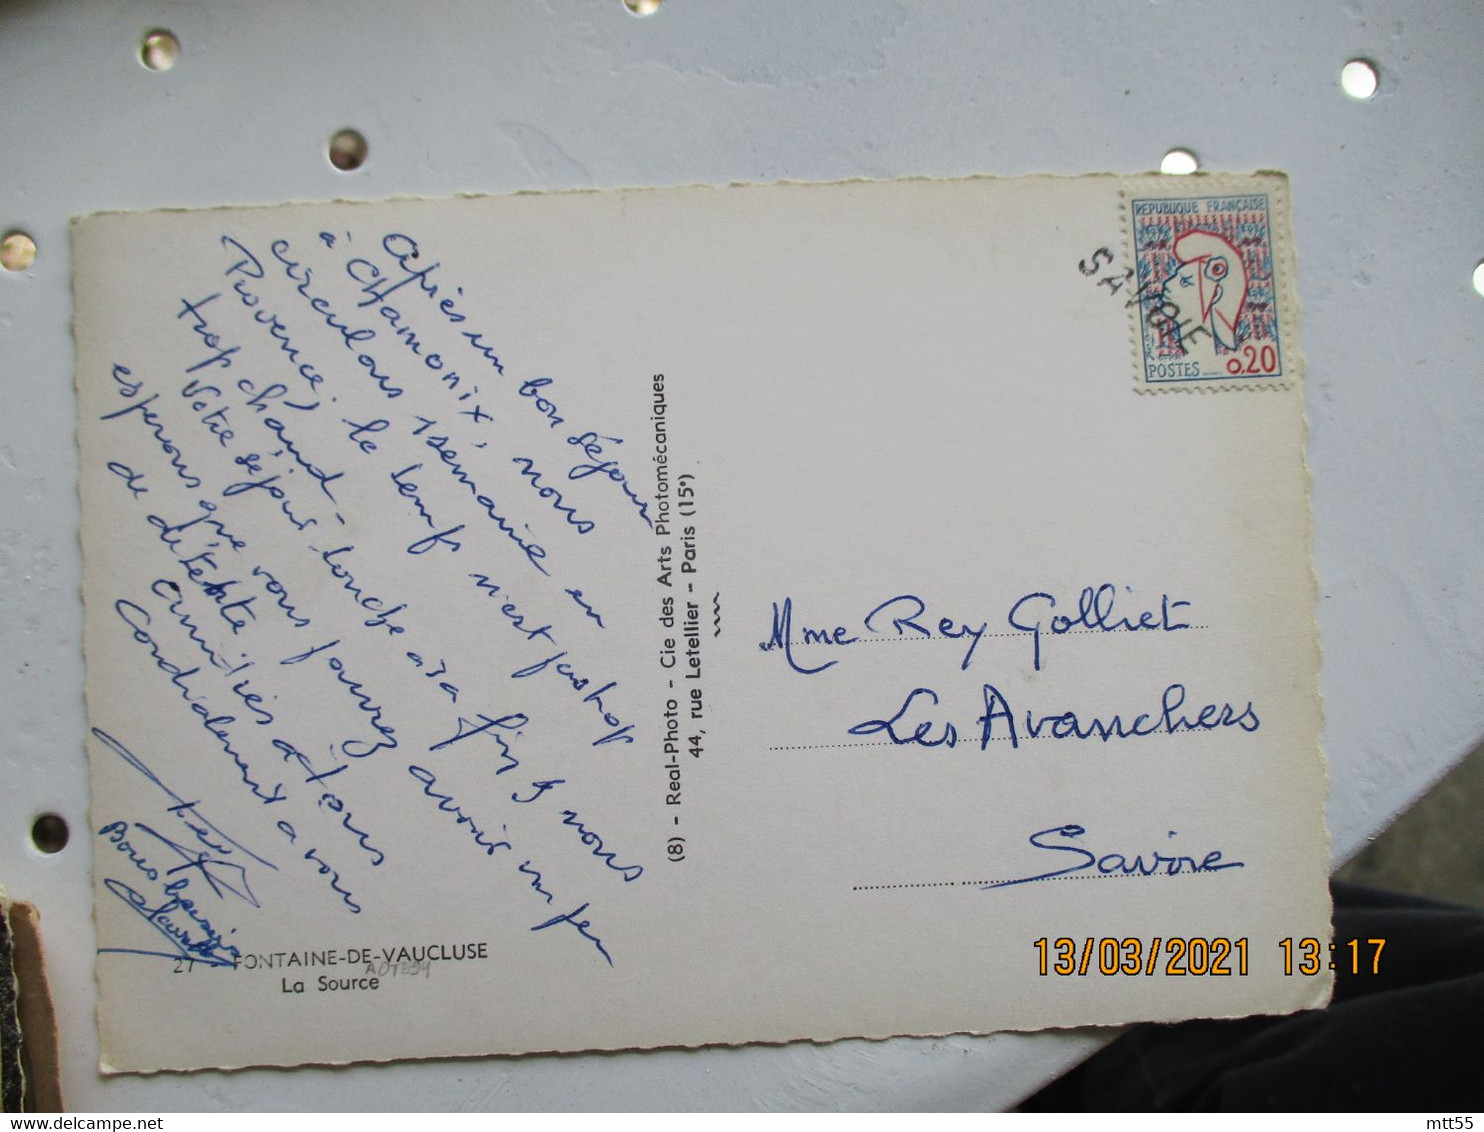 Après un bon séjour
à Chamonix, nous
circulons 1 semaine en
Provence, le temps n'est pas trop
trop chaud -
Votre séjour touche à sa fin & nous
espérons que vous pourrez avoir un peu
de détente
Amitiés à tous
Cordialement à vous
Bons baisers
27 FONTAINE-DE-VAUCLUSE
La Source
(8) - Real-Photo - Cie des Arts Photomécaniques
44, rue Letellier - Paris (15e)
REPUBLIQUE FRANÇAISE
POSTES 0,20
SAVOIE
Mme Rey Golliet
Les Avanchers
Savoie
13/03/2021 13:17
mtt55